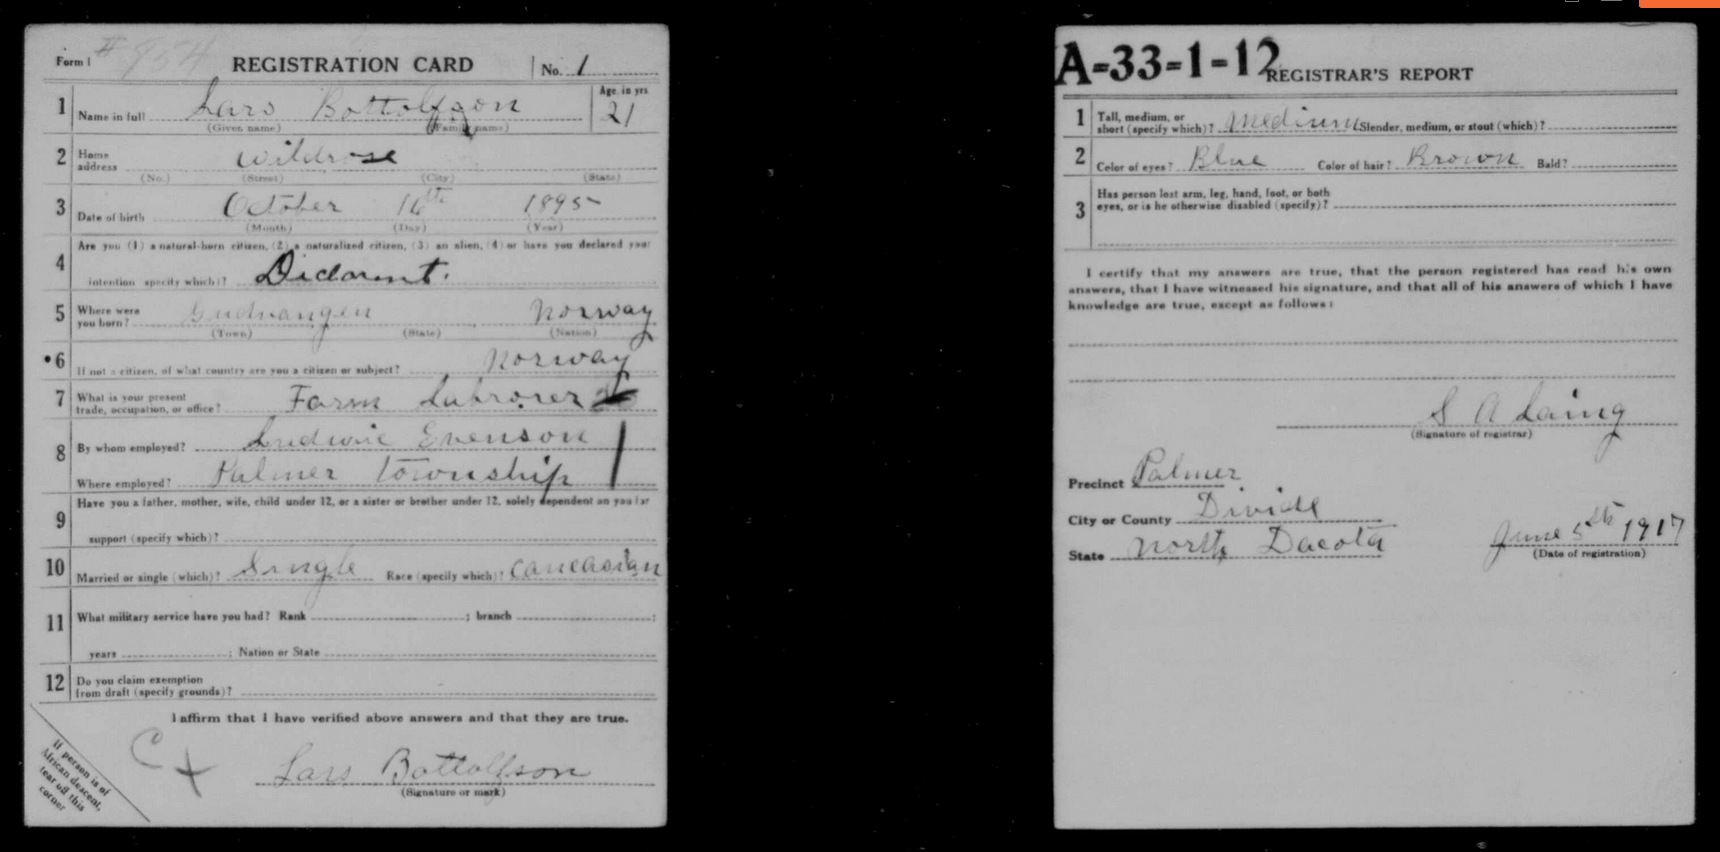 Form 1 # 954 REGISTRATION CARD No. 1
1 Name in full Lars Bottolfson Age, in yrs 21
(Given name) (Family name)
2 Home address Wildrose
(No.) (Street) (City) (State)
3 Date of birth October 16th 1895
(Month) (Day) (Year)
4 Are you (1) a natural-born citizen, (2) a naturalized citizen, (3) an alien, (4) or have you declared your
intention specify which)?
5 Where were you born? Gudvangen Norway
(Town) (State) (Nation)
6 If not a citizen, of what country are you a citizen or subject? Norway
7 What is your present trade, occupation, or office? Farm Labrorer
8 By whom employed? Ludwic Evenson
Where employed? Palmer Township
9 Have you a father, mother, wife, child under 12, or a sister or brother under 12, solely dependent on you for
support (specify which)?
10 Married or single (which)? Single Race (specify which)? Caucasian
11 What military service have you had? Rank ; branch ;
years ; Nation or State
12 Do you claim exemption
from draft (specify grounds)?
I affirm that I have verified above answers and that they are true.
C X
Lars Bottolfson
(Signature or mark)
If person is of
African descent,
tear off this
corner
A-33-1-12 REGISTRAR'S REPORT
1 Tall, medium, or
short (specify which)? Medium Slender, medium, or stout (which)?
2 Color of eyes? Blue Color of hair? Brown Bald?
3 Has person lost arm, leg, hand, foot, or both
eyes, or is he otherwise disabled (specify)?
I certify that my answers are true, that the person registered has read his own
answers, that I have witnessed his signature, and that all of his answers of which I have
knowledge are true, except as follows:
S A Laing
(Signature of registrar)
Precinct Palmer
City or County Divide
State North Dacota June 5th 1917
(Date of registration)